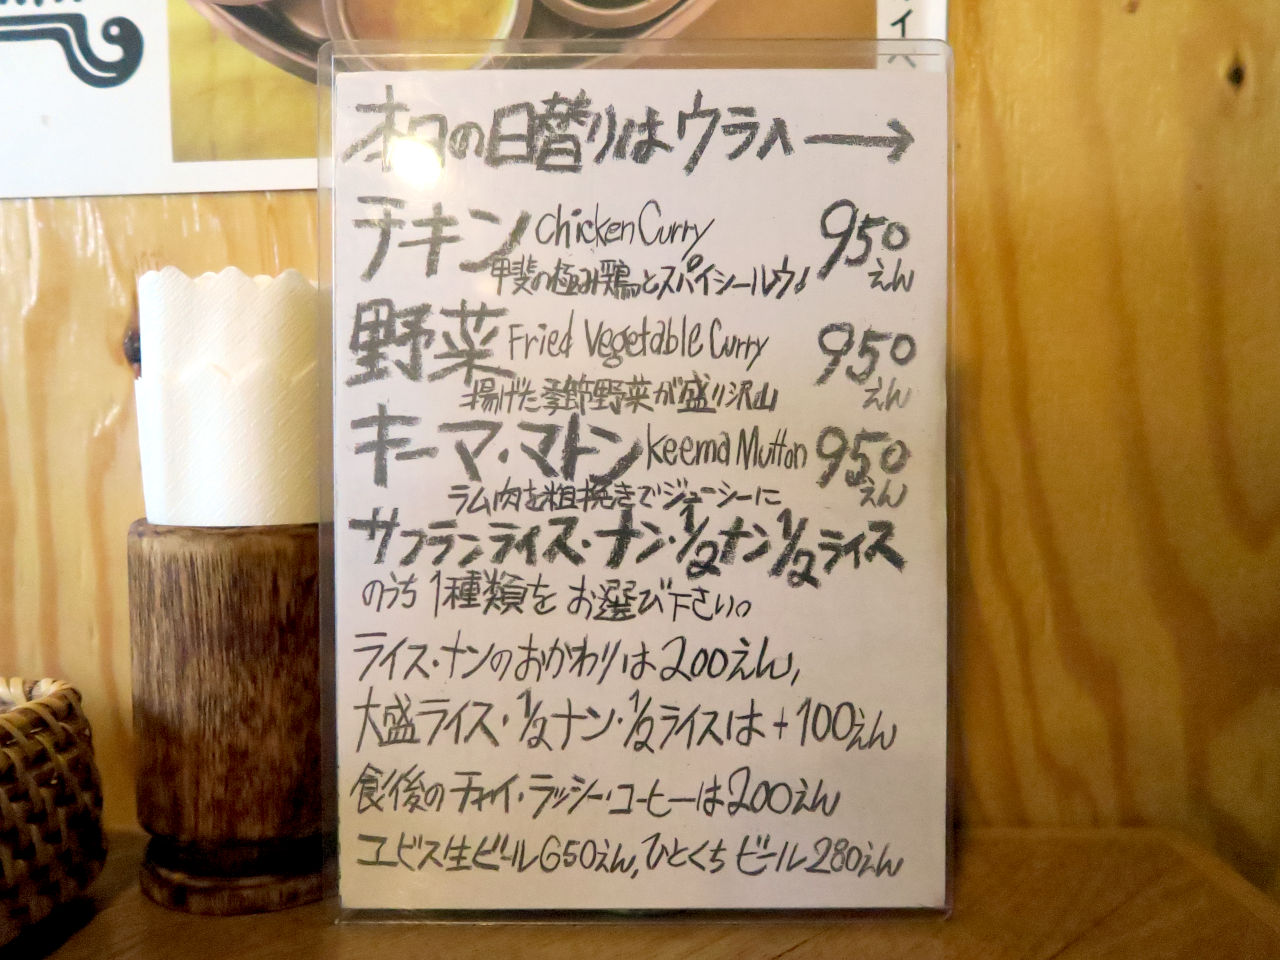 イへ
本日の日替りはウラへ→
チキン Chicken Curry 950えん
甲斐の極み鶏とスパイシールウ!
野菜 Fried Vegetable Curry 950えん
揚げた季節野菜が盛り沢山
キーマ・マトン Keema Mutton 950えん
ラム肉を粗挽きでジューシーに
サフランライス・ナン・1/2ナン1/2ライス
のうち1種類をお選び下さい。
ライス・ナンのおかわりは200えん,
大盛ライス・1/2ナン・1/2ライスは+100えん
食後のチャイ・ラッシー・コーヒーは200えん
ヱビス生ビール650えん,ひとくちビール280えん